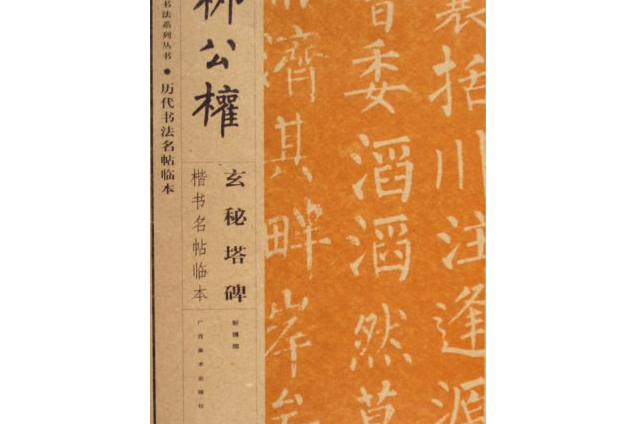 囊括川注逢源
會委滔滔然莫
濟其畔岸矣
柳公權
玄秘塔碑
楷书名帖临本
广西美术出版社
书法系列丛书●历代书法名帖临本